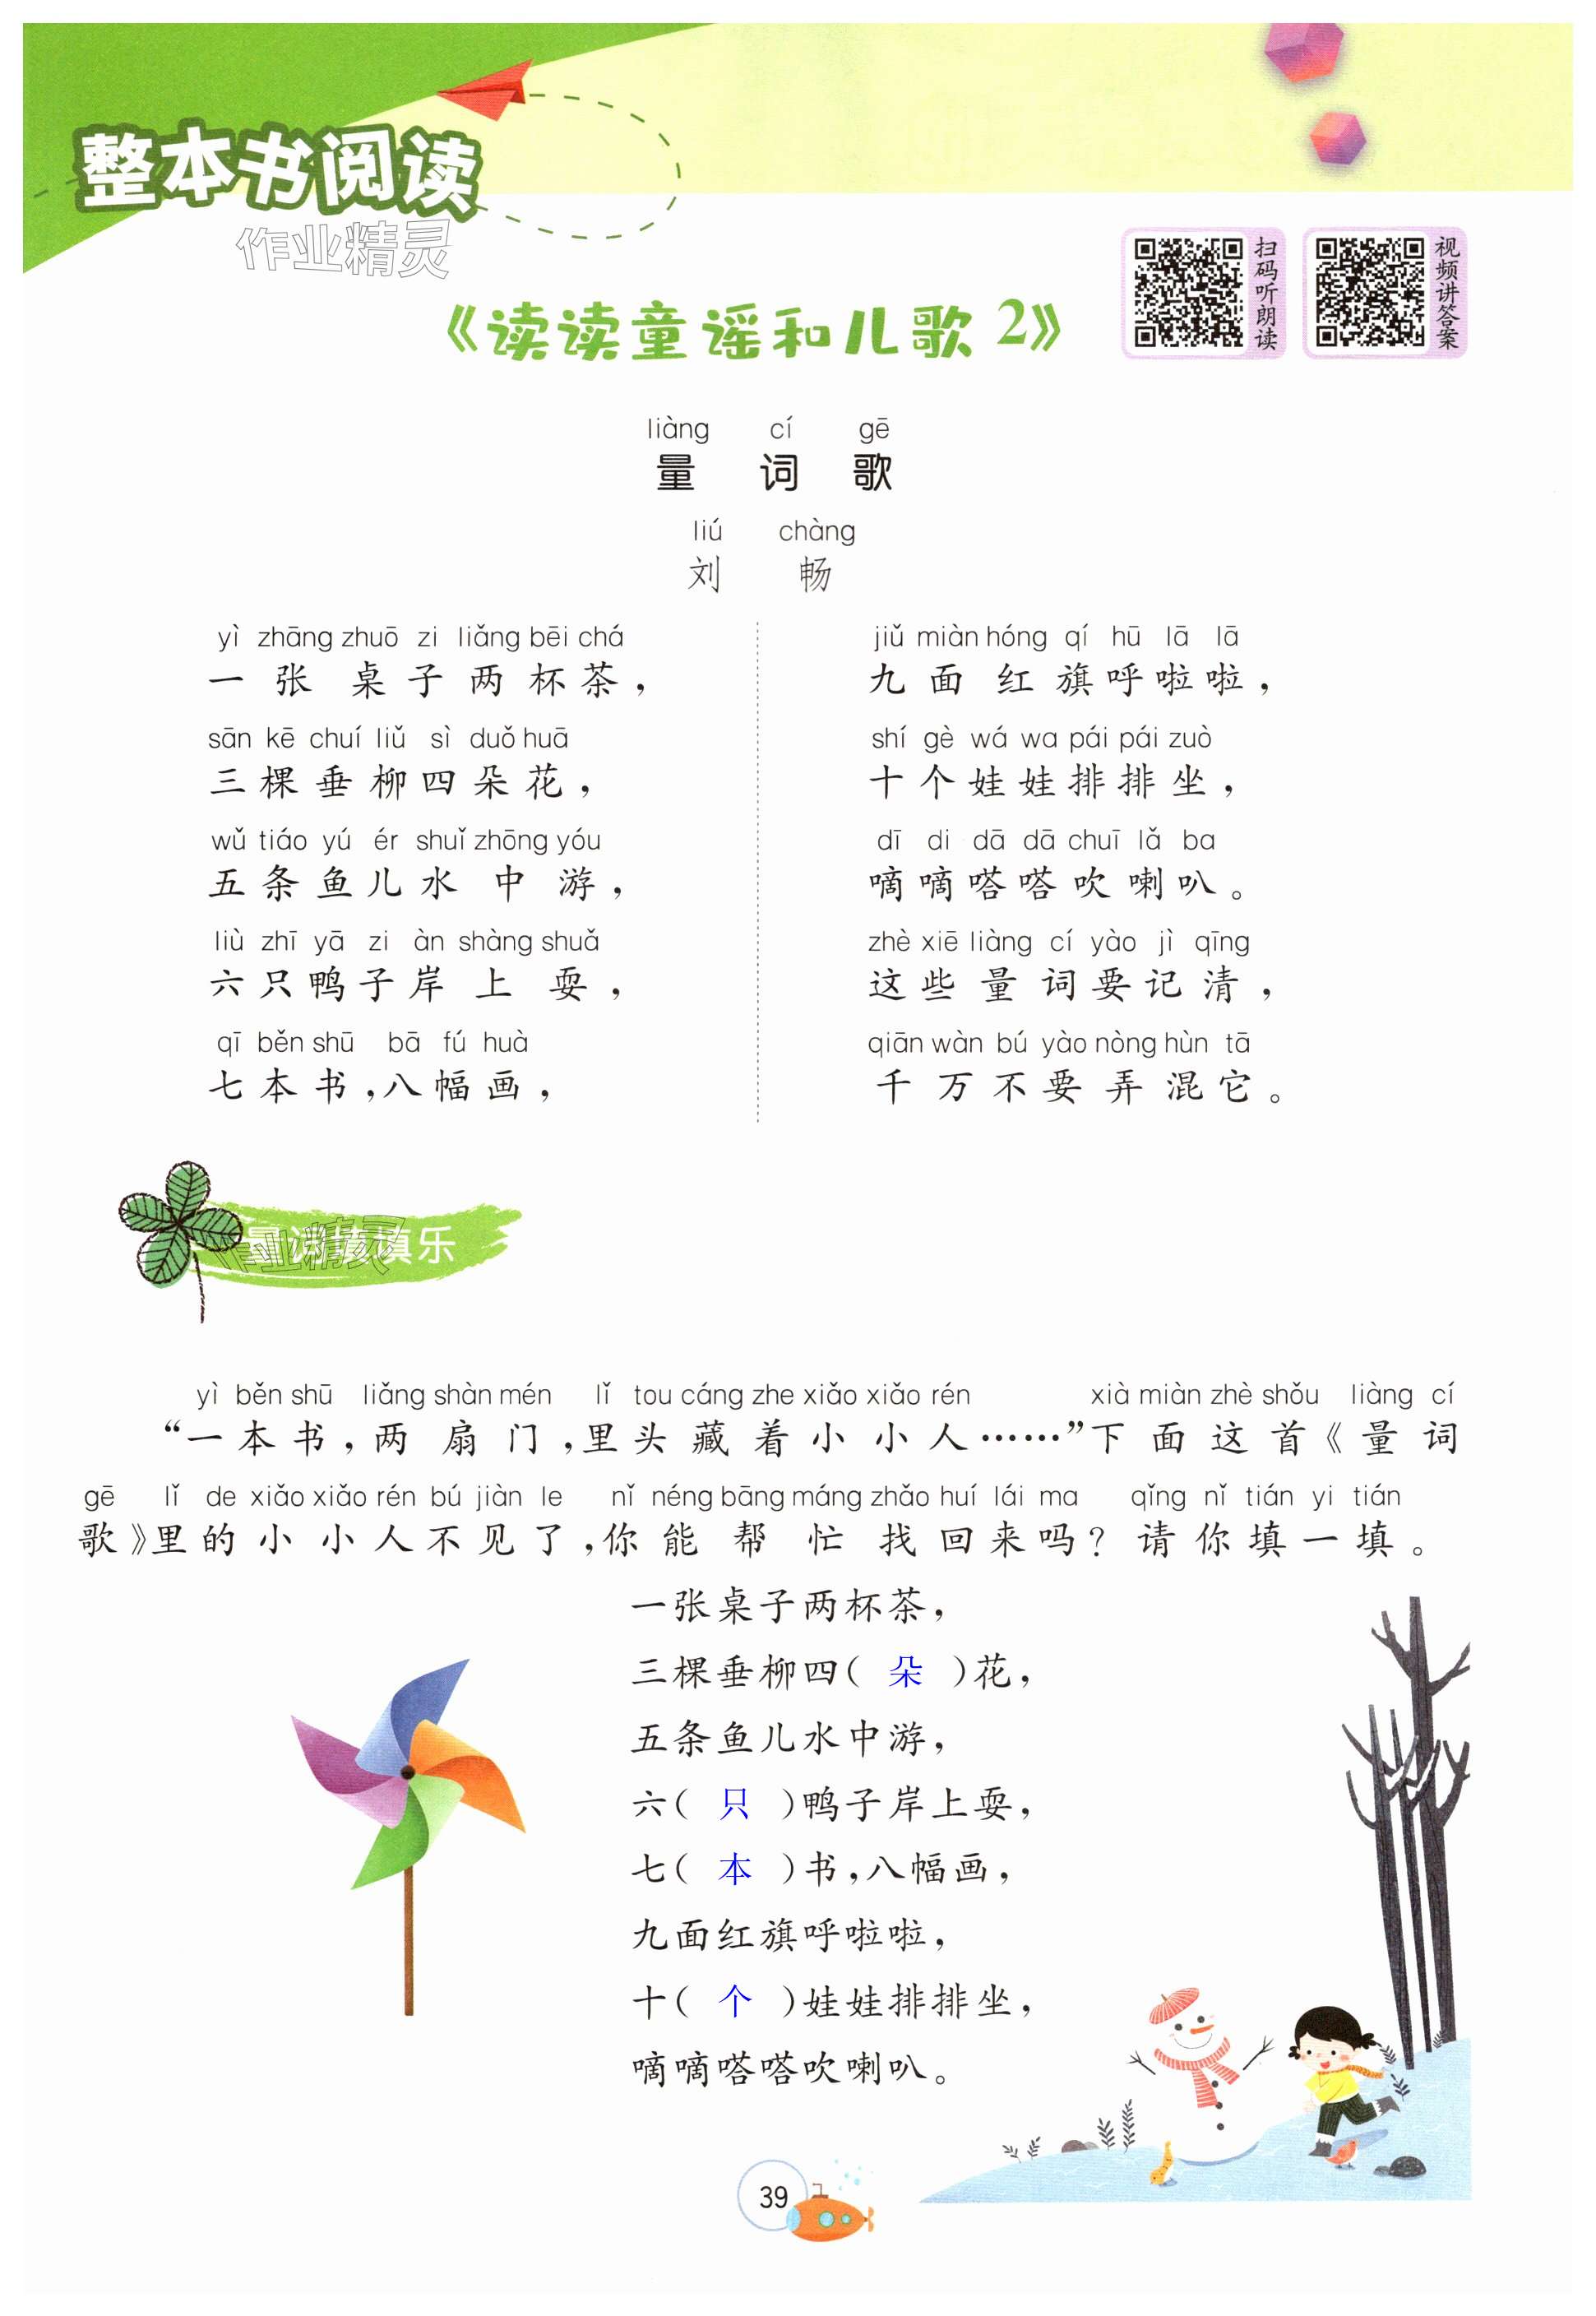 整本书阅读
作业精灵
《读读童谣和儿歌 2》
扫码听朗读
视频讲答案
liàng cí gē
量 词 歌
liú chàng
刘 畅
yì zhāng zhuō zi liǎng bēi chá
一 张 桌 子 两 杯 茶，
sān kē chuí liǔ sì duǒ huā
三 棵 垂 柳 四 朵 花，
wǔ tiáo yú ér shuǐ zhōng yóu
五 条 鱼 儿 水 中 游，
liù zhī yā zi àn shàng shuǎ
六 只 鸭 子 岸 上 耍，
qī běn shū bā fú huà
七 本 书，八 幅 画，
jiǔ miàn hóng qí hū lā lā
九 面 红 旗 呼 啦 啦，
shí gè wá wa pái pái zuò
十 个 娃 娃 排 排 坐，
dī di dā dā chuī lǎ ba
嘀 嘀 嗒 嗒 吹 喇 叭。
zhè xiē liàng cí yào jì qīng
这 些 量 词 要 记 清，
qiān wàn bú yào nòng hùn tā
千 万 不 要 弄 混 它。
作业精灵
yì běn shū liǎng shàn mén lǐ tou cáng zhe xiǎo xiǎo rén xià miàn zhè shǒu liàng cí
“一 本 书，两 扇 门，里 头 藏 着 小 小 人……”下 面 这 首《量 词
gē lǐ de xiǎo xiǎo rén bú jiàn le nǐ néng bāng máng zhǎo huí lái ma qǐng nǐ tián yi tián
歌》里 的 小 小 人 不 见 了，你 能 帮 忙 找 回 来 吗？请 你 填 一 填。
一张桌子两杯茶，
三棵垂柳四（ 朵 ）花，
五条鱼儿水中游，
六（ 只 ）鸭子岸上耍，
七（ 本 ）书，八幅画，
九面红旗呼啦啦，
十（ 个 ）娃娃排排坐，
嘀嘀嗒嗒吹喇叭。
39